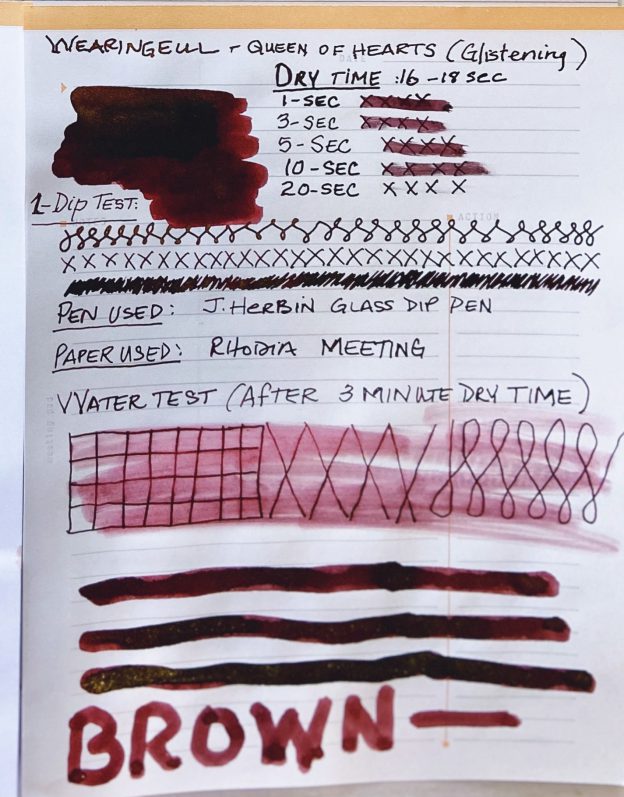 WEARINGEUL - QUEEN OF HEARTS (Glistening)
DRY TIME : 16 - 18 SEC
1-SEC XXXX
3-SEC XXXX
5-SEC XXXX
10-SEC XXXX
20-SEC XXXX
1-Dip TEST:
ACTION
PEN USED: J. HERBIN GLASS DIP PEN
PAPER USED: RHODIA MEETING
WATER TEST (AFTER 3 MINUTE DRY TIME)
BROWN —